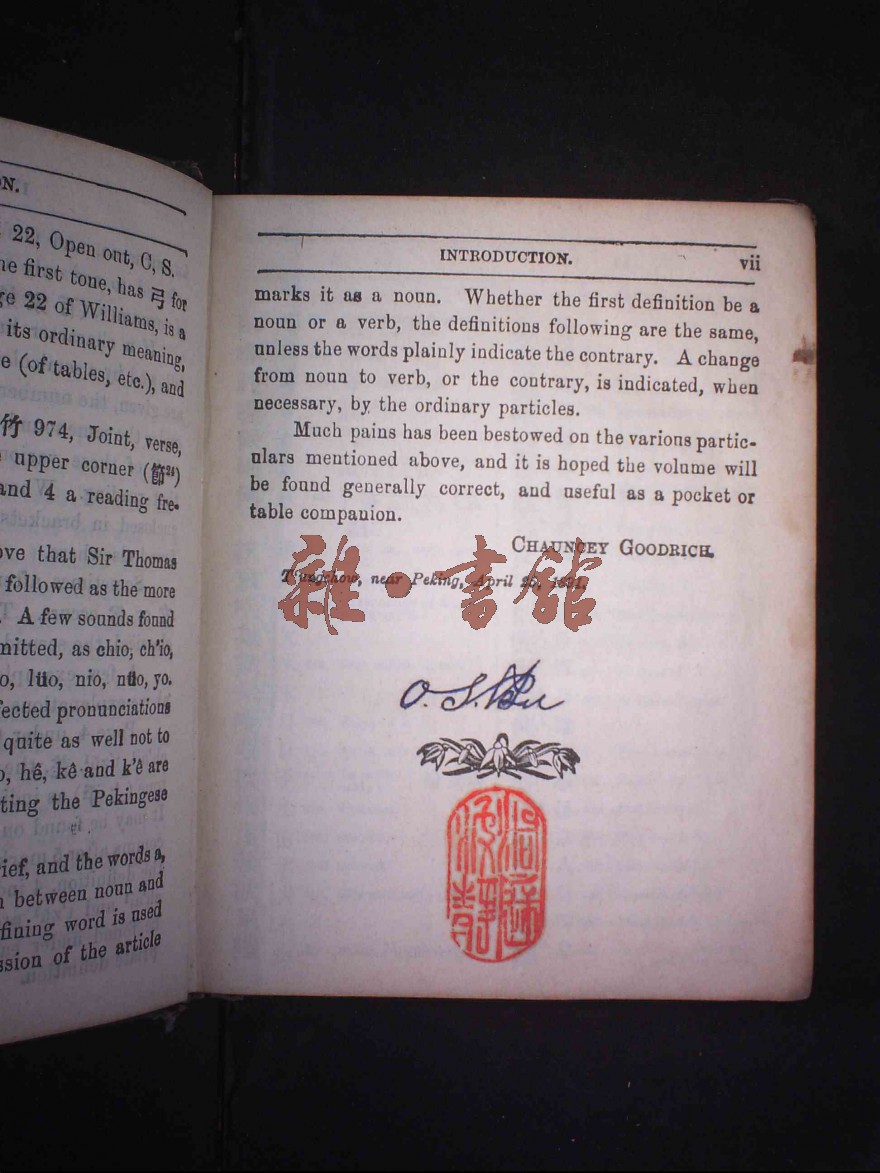 ON.
22, Open out, C, S.
he first tone, has 弓 for
ge 22 of Williams, is a
its ordinary meaning,
e (of tables, etc.), and
竹 974, Joint, verse,
upper corner (節24)
and 4 a reading fre-
ove that Sir Thomas
followed as the more
. A few sounds found
mitted, as chio, ch'io,
o, lüo, nio, nüo, yo.
fected pronunciations
quite as well not to
o, hê, kê and k'ê are
ting the Pekingese
rief, and the words a,
n between noun and
fining word is used
ssion of the article
INTRODUCTION. vii
marks it as a noun. Whether the first definition be a
noun or a verb, the definitions following are the same,
unless the words plainly indicate the contrary. A change
from noun to verb, or the contrary, is indicated, when
necessary, by the ordinary particles.
Much pains has been bestowed on the various partic-
ulars mentioned above, and it is hoped the volume will
be found generally correct, and useful as a pocket or
table companion.
CHAUNCEY GOODRICH.
T'ungchow, near Peking, April 25, 1891.
雜·書館
O. S.